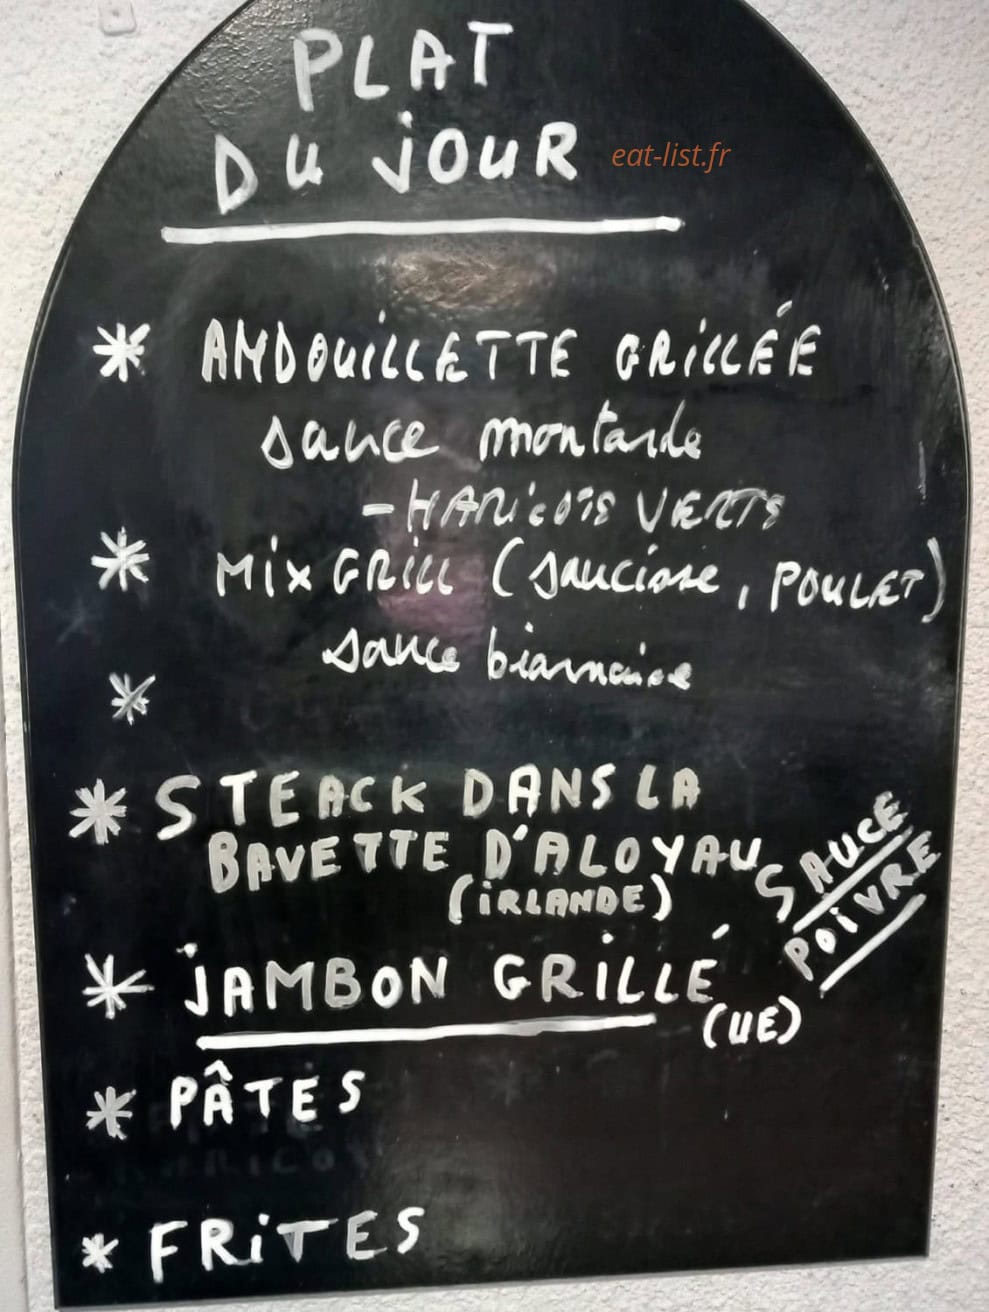 PLAT
DU JOUR
eat-list.fr
* ANDOUILLETTE GRILLÉE
sauce moutarde
- HARICOTS VERTS
* MIX GRILL (saucisse, POULET)
sauce biarnaise
*
* STEACK DANS LA
BAVETTE D'ALOYAU
(IRLANDE)
SAUCE
POIVRE
* JAMBON GRILLÉ
(UE)
* PÂTES
* FRITES